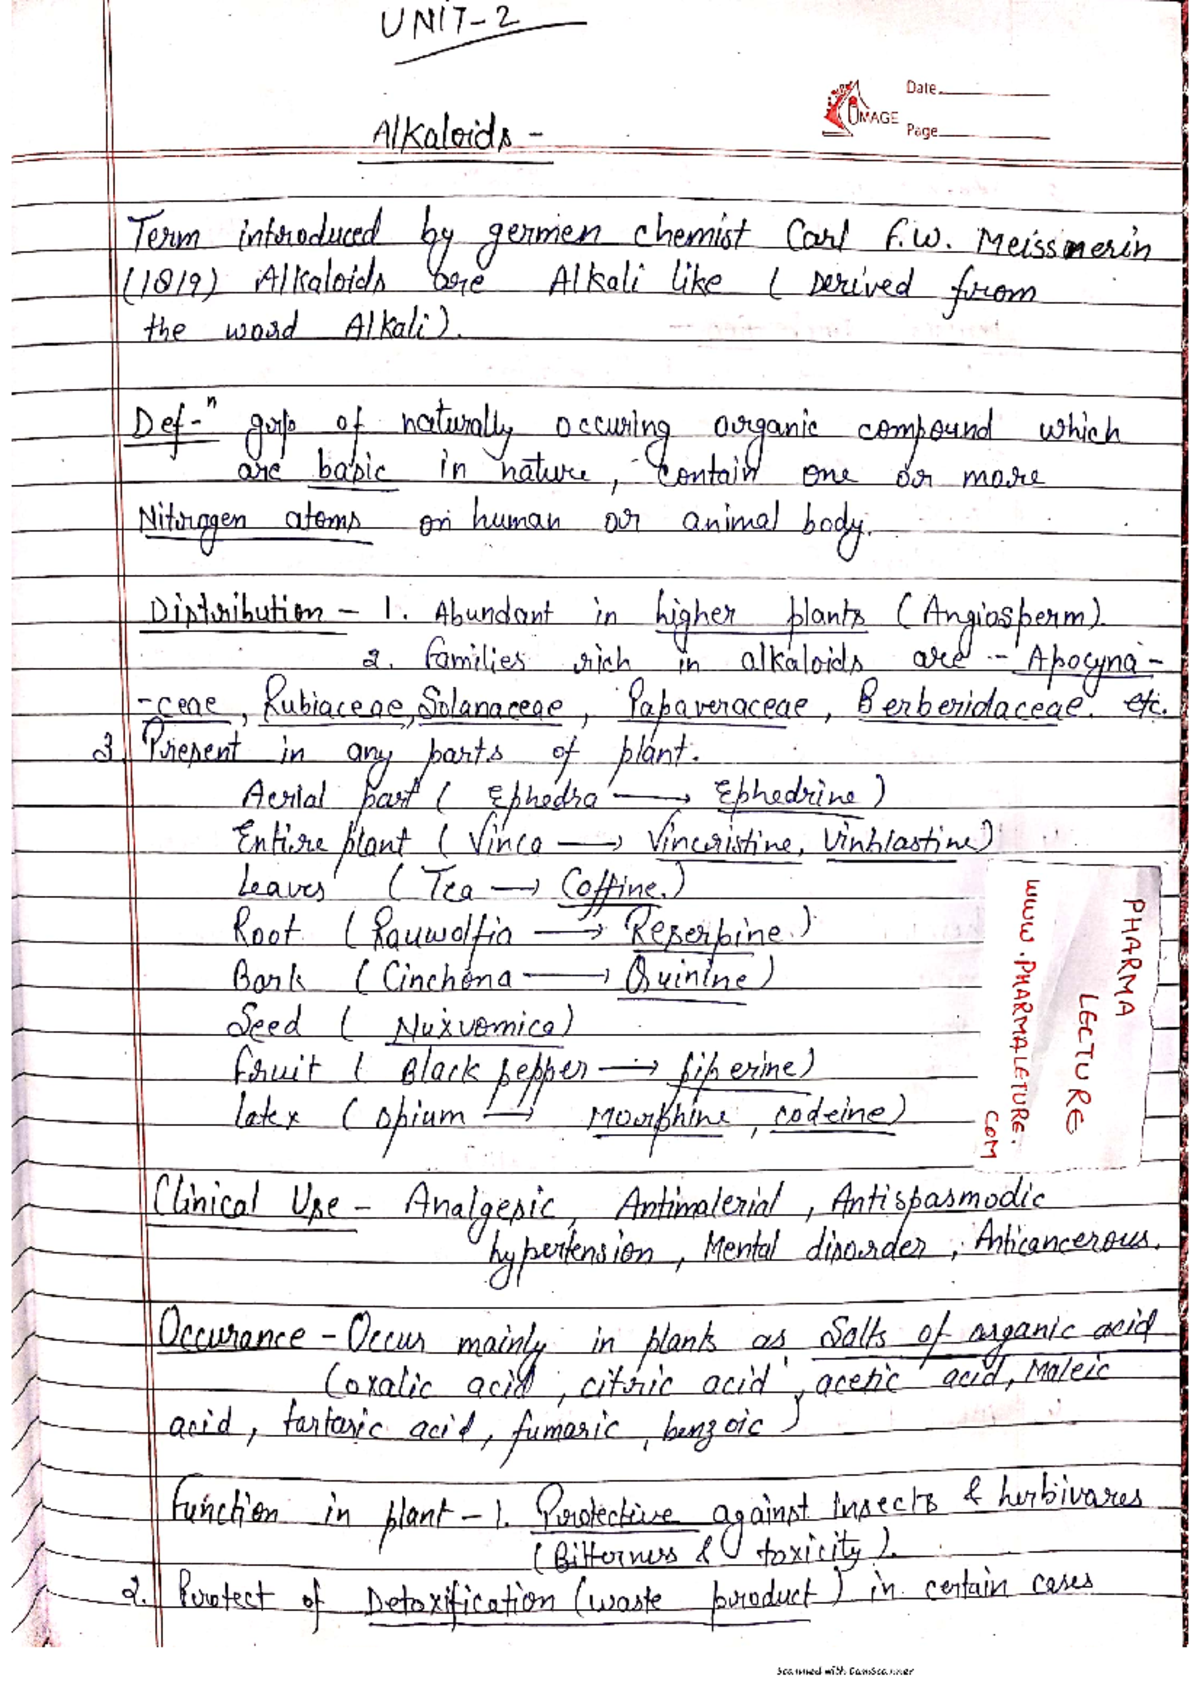 UNIT-2
IMAGE
Date
Page
Alkaloids -
Term introduced by germen chemist Carl F.W. Meissnerin
(1819) Alkaloids are Alkali like (Derived from
the word Alkali).
Def-n grp of naturally occuring organic compound which
are basic in nature, contain one or more
Nitrogen atoms on human or animal body.
Distribution - 1. Abundant in higher plants (Angiosperm).
2. Families rich in alkaloids are - Apocyna-
-ceae, Rubiaceae, Solanaceae, Papaveraceae, Berberidaceae. etc.
3. Present in any parts of plant.
Aerial part (Ephedra → Ephedrine)
Entire plant (Vinca → Vincristine, Vinblastine)
Leaves (Tea → Coffine.)
Root (Rauwolfia → Reserpine.)
Bark (Cinchona → Quinine)
Seed (Nuxvomica)
Fruit (Black pepper → piperine)
Latex (Opium → Morphine, codeine)
PHARMA
LECTURE
WWW.PHARMALETURE.
COM
Clinical Use - Analgesic, Antimalerial, Antispasmodic
hypertension, Mental disorder, Anticancerous.
Occurance - Occur mainly in plants as Salts of organic acid
(oxalic acid, citric acid, acetic acid, Maleic
acid, tartaric acid, fumaric, benzoic)
Function in plant - 1. Protective against Insects & herbivares
(Bitterness & toxicity).
2. Protect of Detoxification (waste product) in certain cases
Scanned with CamScanner